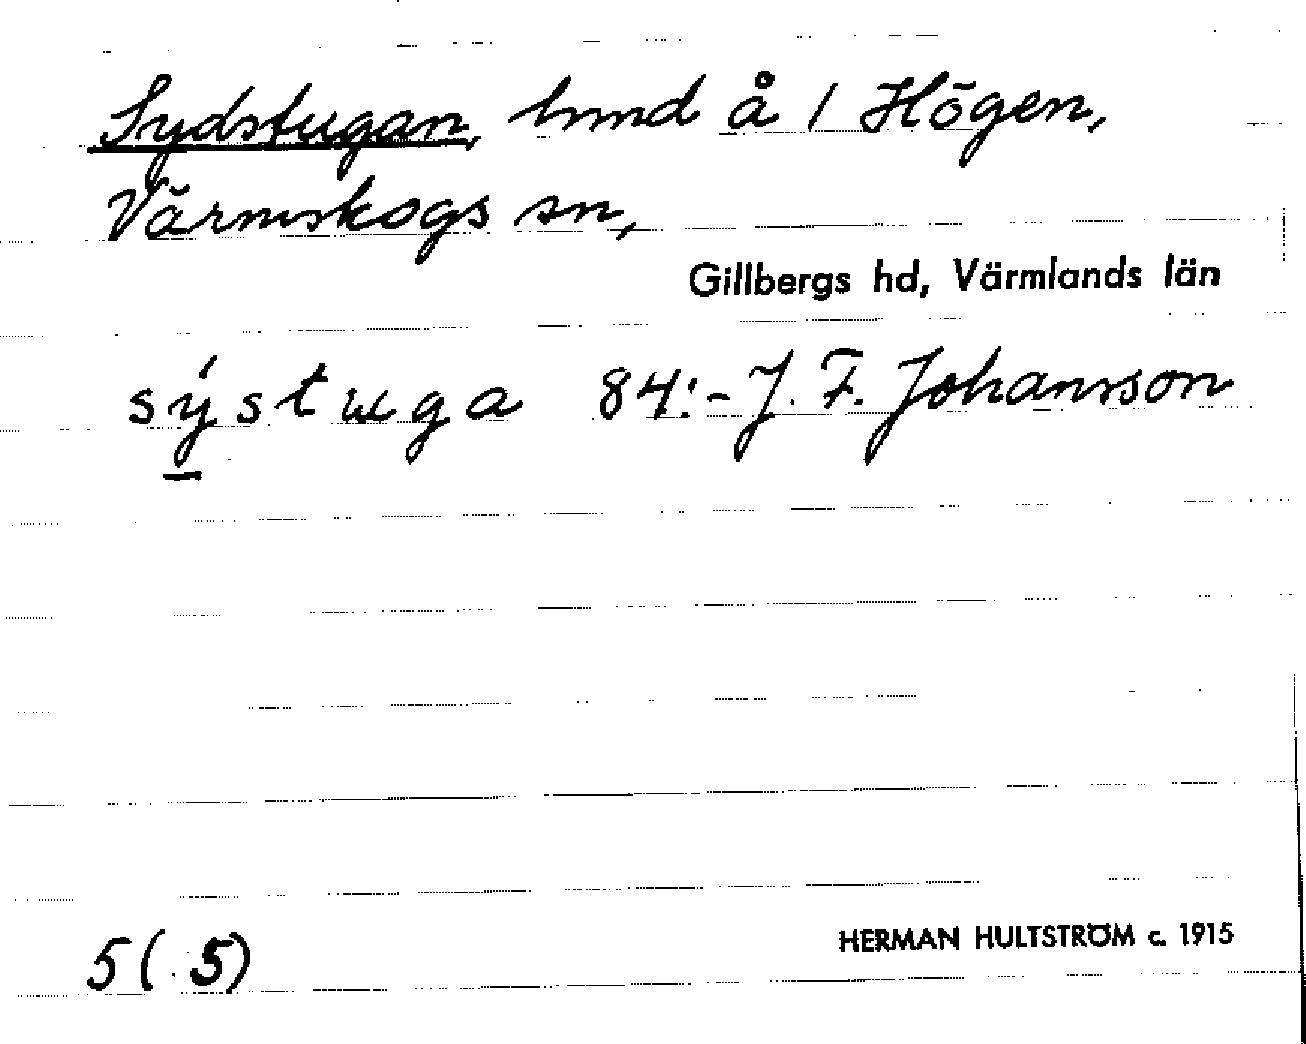 Sydstugan, hmd å 1 Högen,
Värmskogs sn,
Gillbergs hd, Värmlands län
sýstuga 84:- J. F. Johansson
5(5)
HERMAN HULTSTRÖM c. 1915